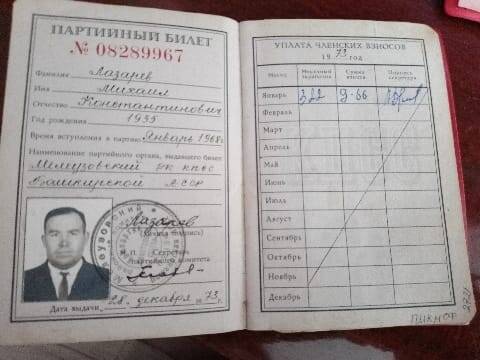 ПАРТИЙНЫЙ БИЛЕТ
№ 08289967
Фамилия Лазарев
Имя Михаил
Отчество Константинович
Год рождения 1935
Время вступления в партию Январь 1968 г.
Наименование партийного органа, выдавшего билет
Мелеузовский РК КПСС
Башкирской АССР
Лазарев
(Личная подпись)
М. П. Секретарь
партийного комитета
Дата выдачи 28 декабря 1973 г.
УПЛАТА ЧЛЕНСКИХ ВЗНОСОВ
1973 год
Месяц Месячный заработок Сумма взноса Подпись секретаря
Январь 322 9-66
Февраль
Март
Апрель
Май
Июнь
Июль
Август
Сентябрь
Октябрь
Ноябрь
Декабрь